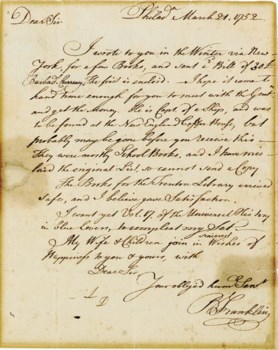 Philad.a March 21. 1752
Dear Sir
I wrote to you in the Winter via New-
York, for a few Books, and sent a Bill of
Currency, the first is enclos'd. I hope it came to
hand time enough for you to meet with the
and get the Money. He is Capt. of a Sloop, and was
to be found at the New England Coffee House, but
probably may be gone before you receive this
They were mostly School Books, and I have mis
laid the original List, so cannot send a Copy
The Books for the Trenton Library arrived
Safe, and I believe gave Satisfaction.
I want yet Vol. 17. of the Universal History
in blue Covers, to compleat my Set.
My Wife & Children join in Wishes of
Happiness to you & yours, with
Dear Sir
Your obliged hum. Serv.t
B Franklin